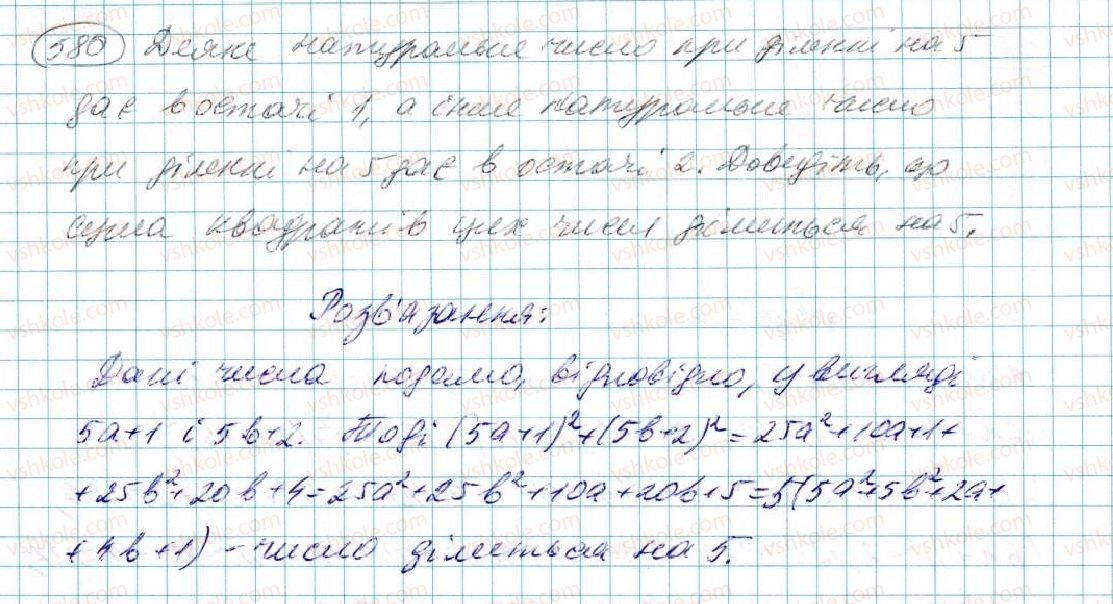 580 Деяке натуральне число при діленні на 5
дає в остачі 1, а інше натуральне число
при діленні на 5 дає в остачі 2. Доведіть, що
сума квадратів цих чисел ділиться на 5.
Розв'язання:
Дані числа подамо, відповідно, у вигляді
5a+1 і 5b+2. Тоді (5a+1)²+(5b+2)²=25a²+10a+1+
+25b²+20b+4=25a²+25b²+10a+20b+5=5(5a²+5b²+2a+
+4b+1) - число ділиться на 5.